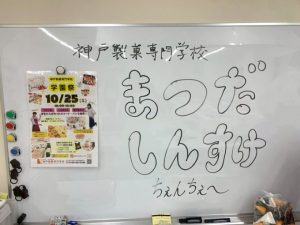 神戸製菓専門学校
まつだ
しんすけ
ちぇんちぇ〜
学園祭
10/25